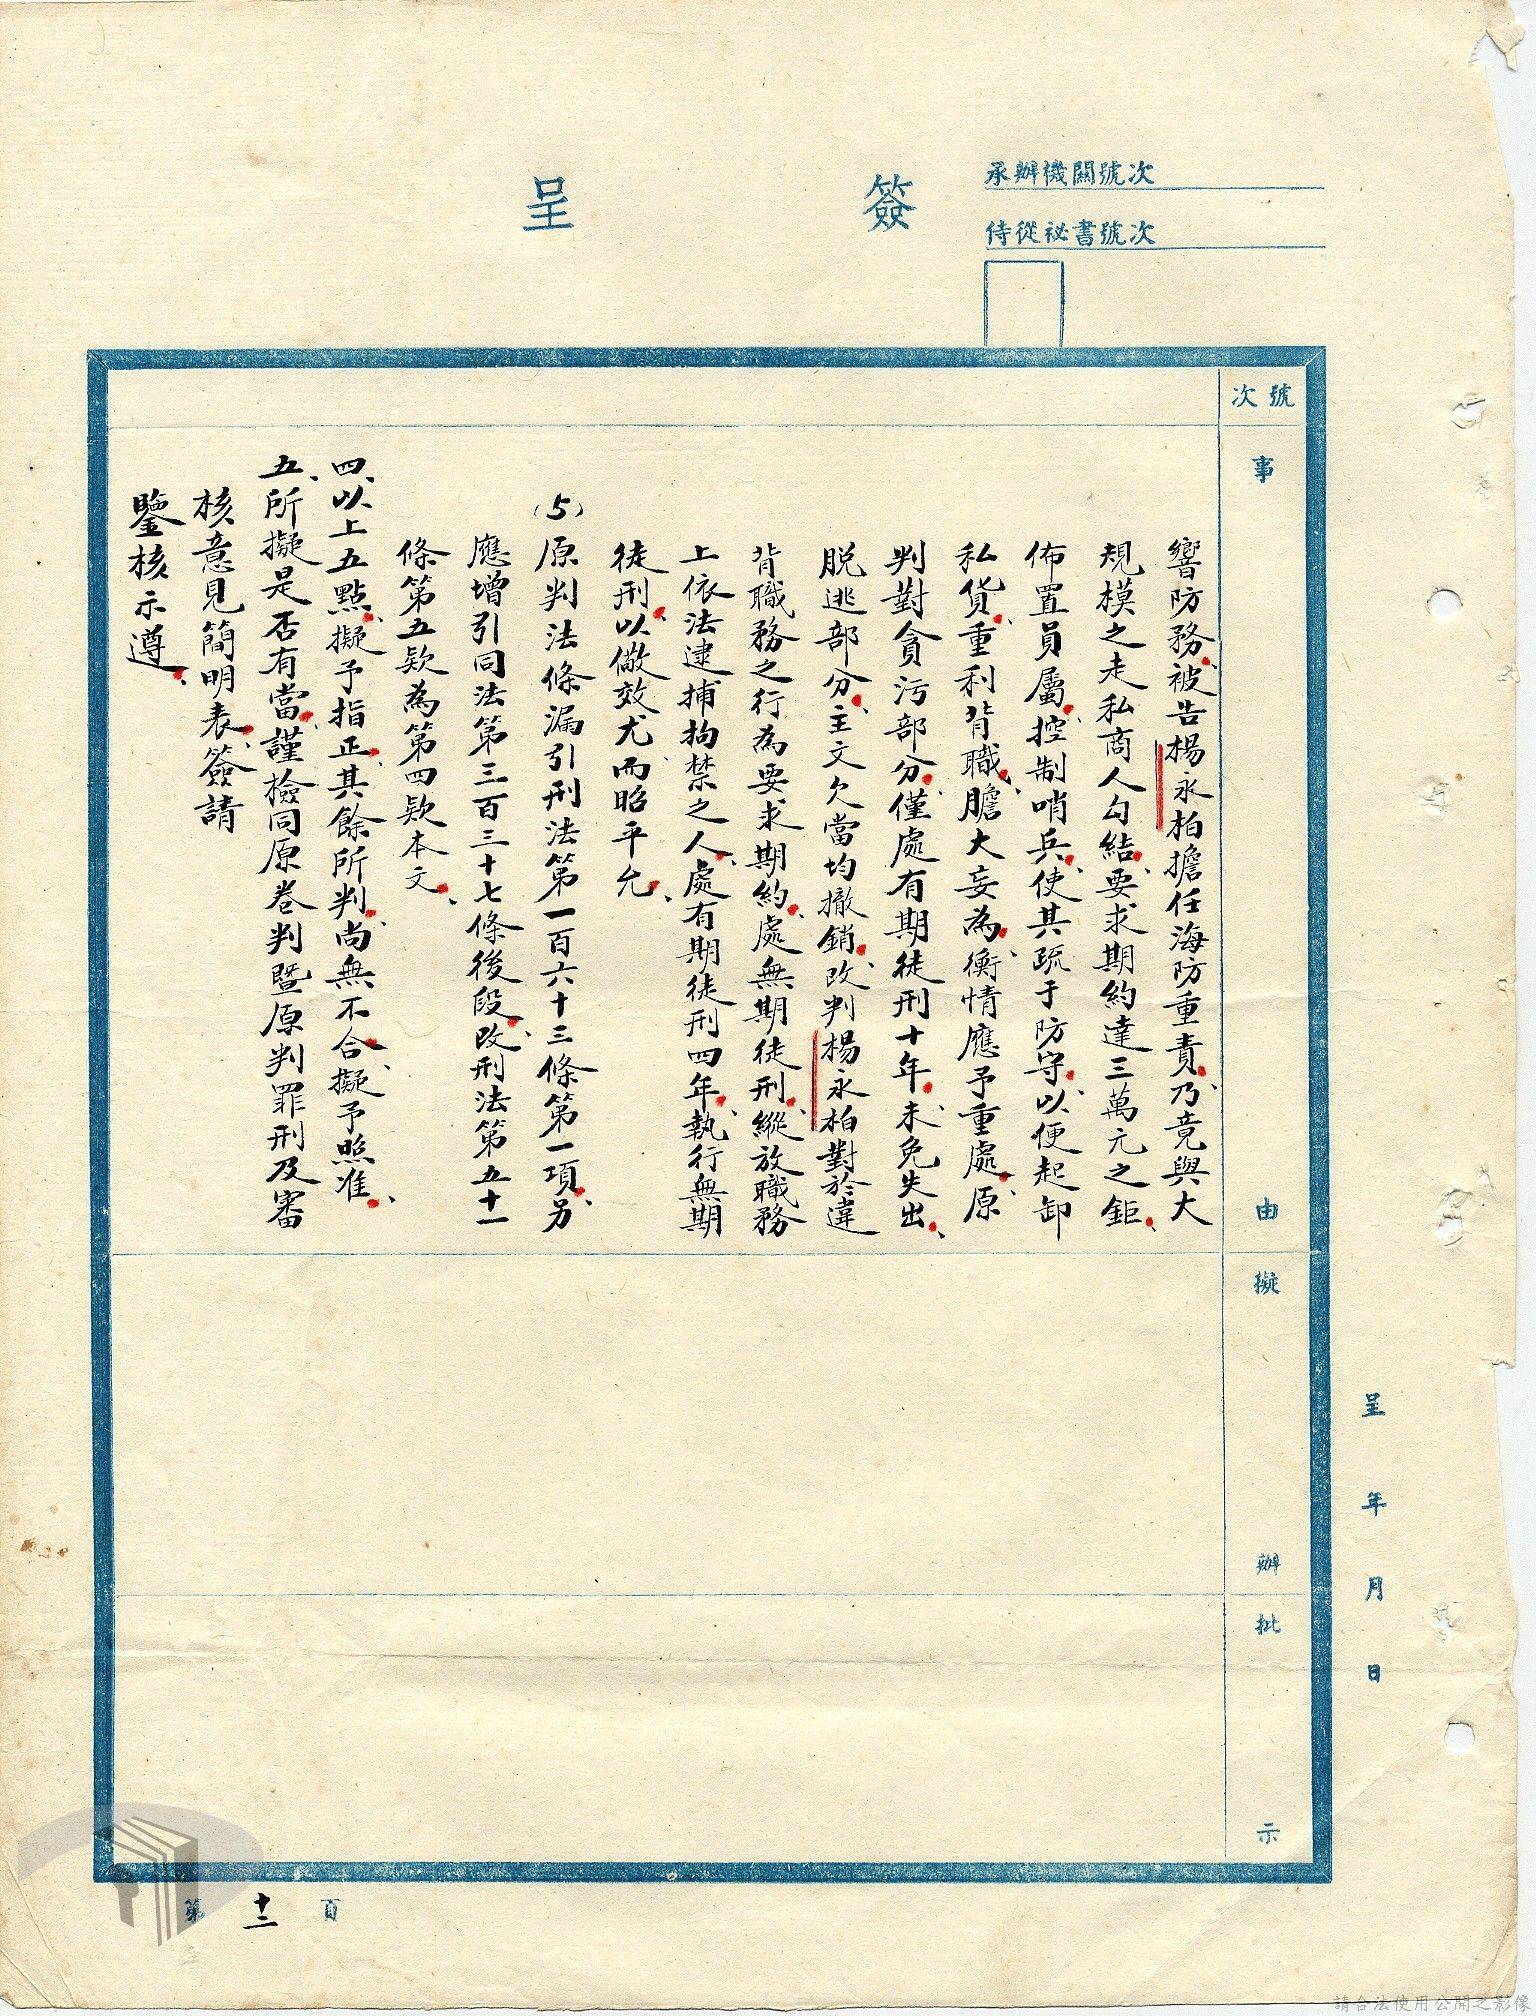 簽呈
承辦機關號次
侍從祕書號次
號次
事由
擬辦
批示
響防務、被告楊永柏擔任海防重責、乃竟與大
規模之走私商人勾結、要求期約達三萬元之鉅、
佈置員屬、控制哨兵、使其疏于防守、以便起卸
私貨、重利背職、膽大妄為、衡情應予重處、原
判對貪污部分、僅處有期徒刑十年、未免失出、
脫逃部分、主文欠當均撤銷、改判楊永柏對於違
背職務之行為要求期約、處無期徒刑、縱放職務
上依法逮捕拘禁之人、處有期徒刑四年、執行無期
徒刑、以儆效尤而昭平允、
(5)原判法條漏引刑法第一百六十三條第一項、另
應增引同法第三百三十七條後段、改刑法第五十一
條第五款為第四款本文、
四、以上五點、擬予指正、其餘所判、尚無不合、擬予照准、
五、所擬是否有當、謹檢同原卷判暨原判罪刑及審
核意見簡明表、簽請
鑒核示遵、
呈 年 月 日
第十二頁
請合法使用公開之影像